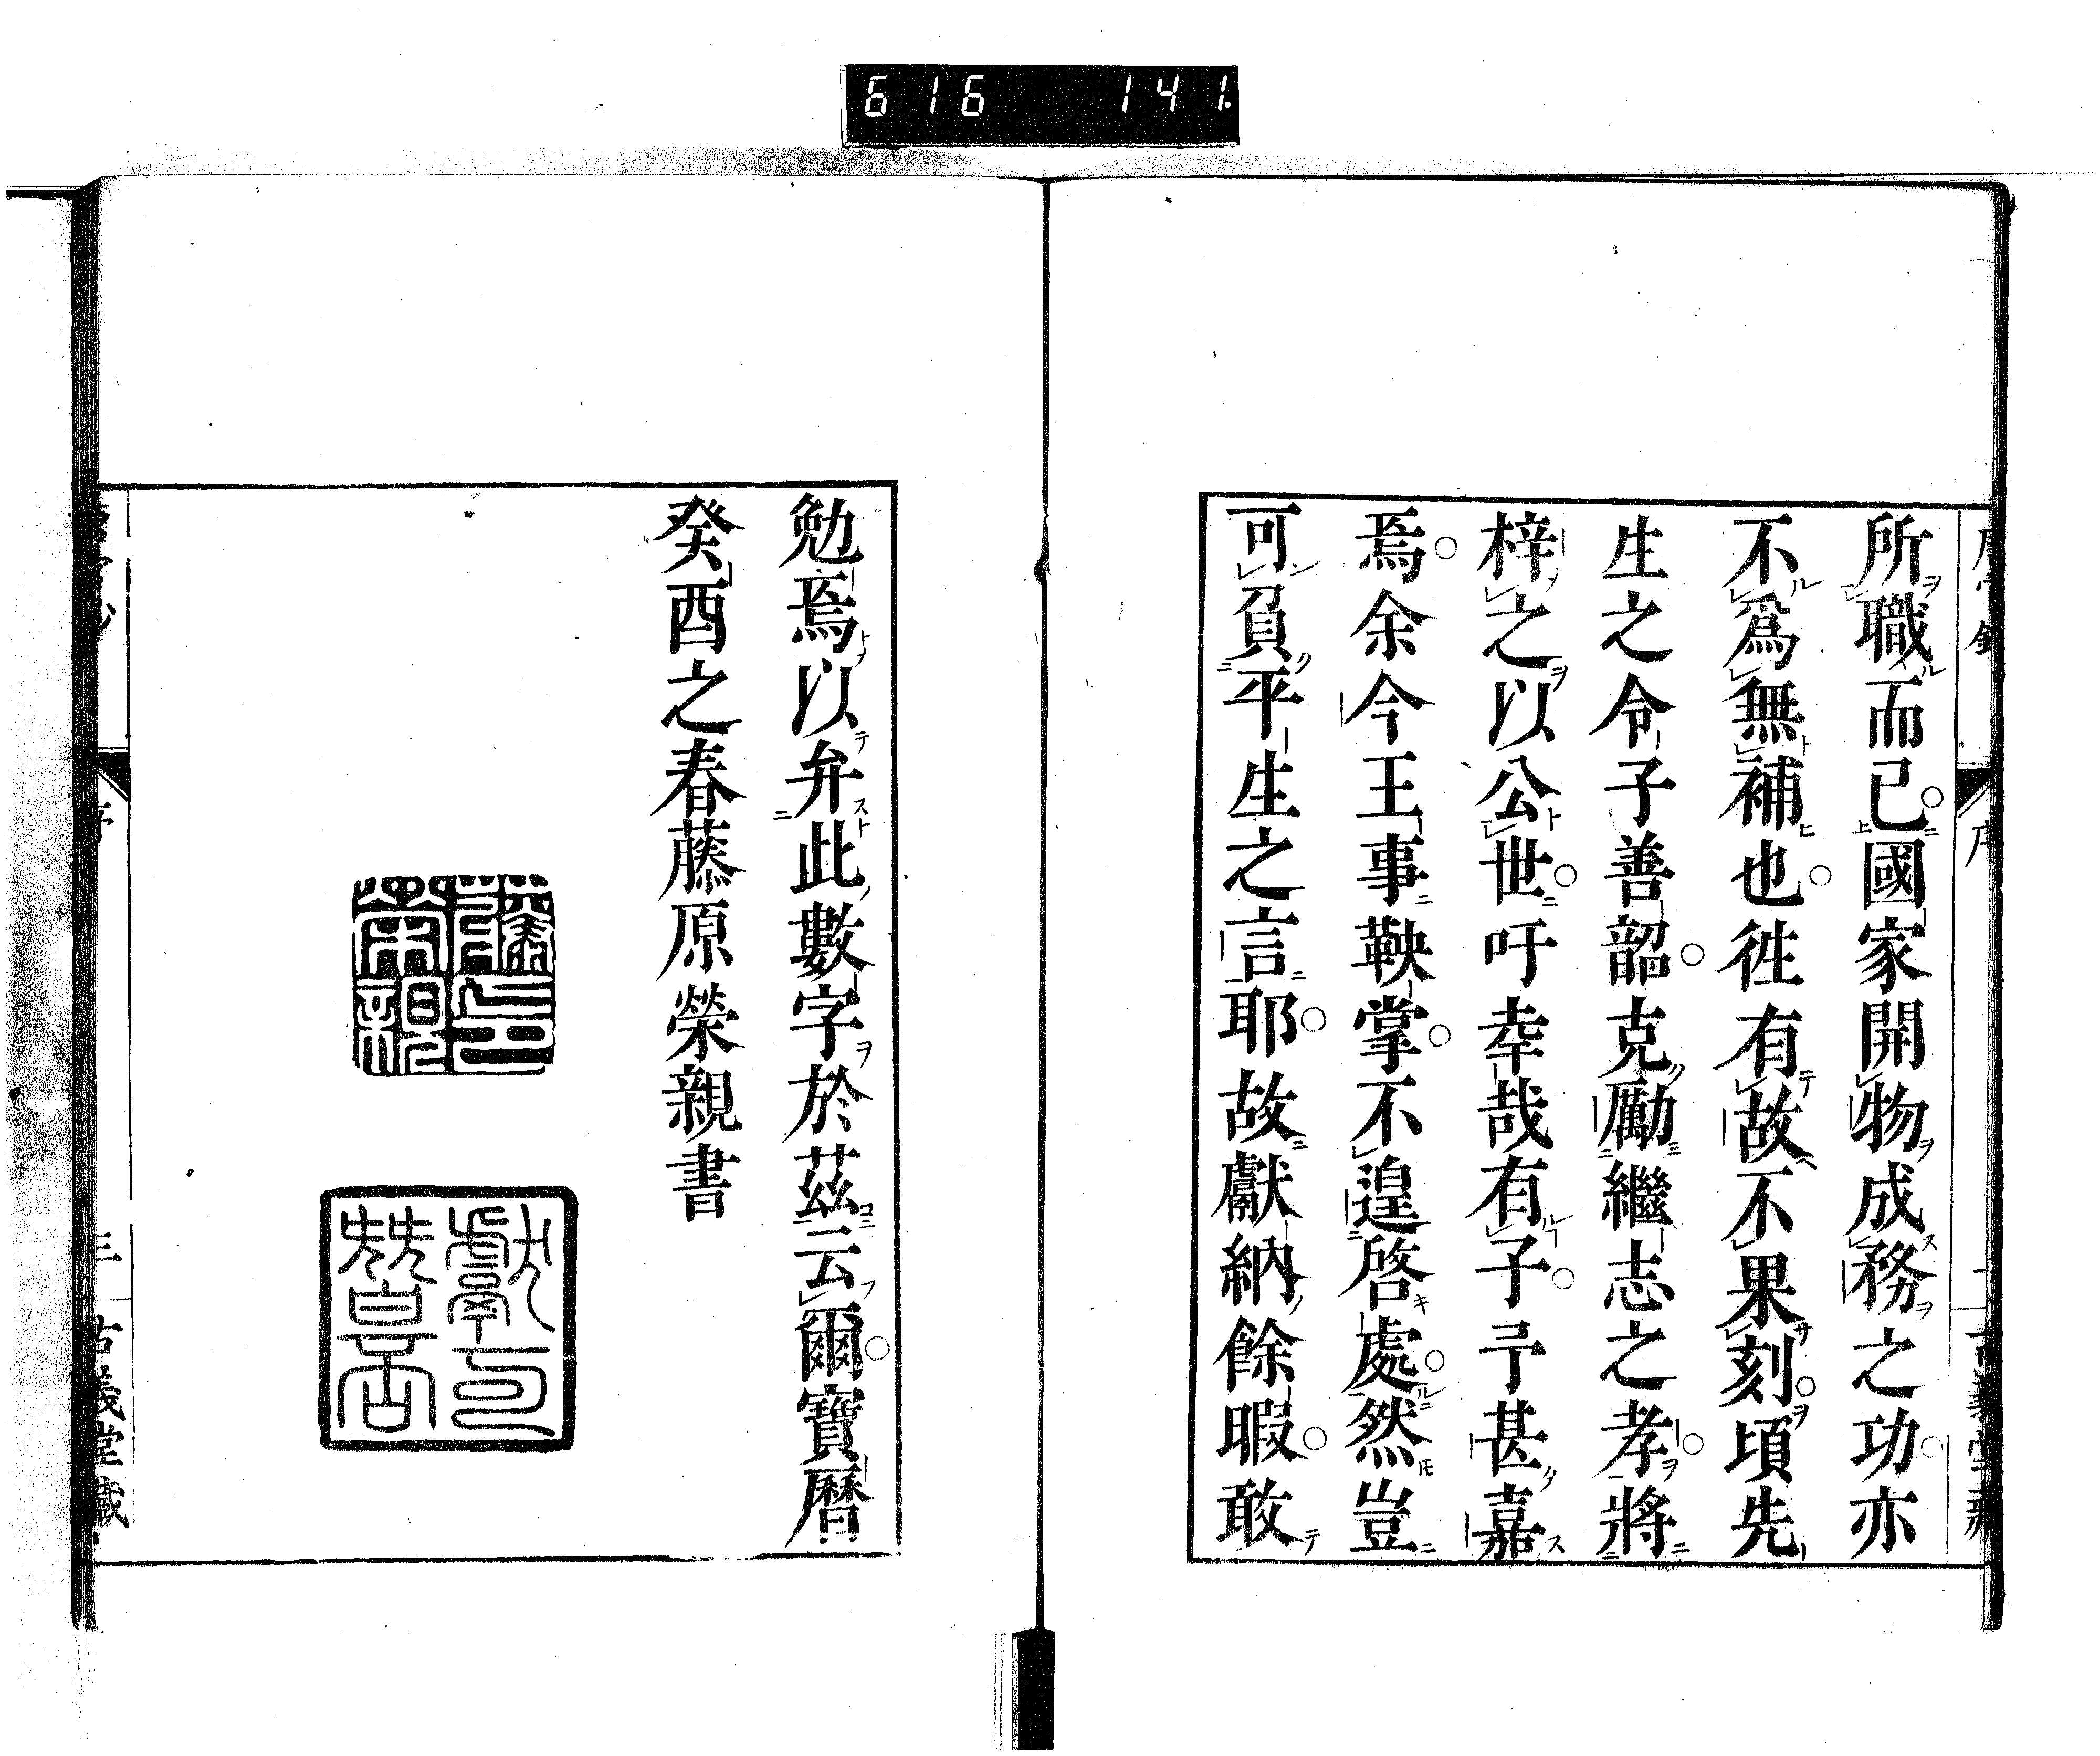 616 141.
所職而已國家開物成務之功亦
不爲無補也徃有故不果刻頃先
生之令子善韶克勵繼志之孝將
梓之以公世吁幸哉有子予甚嘉
焉余今王事鞅掌不遑啓處然豈
可負平生之言耶故獻納餘暇敢
勉焉以弁此數字於茲云爾寶曆
癸酉之春藤原榮親書
三
古義堂藏